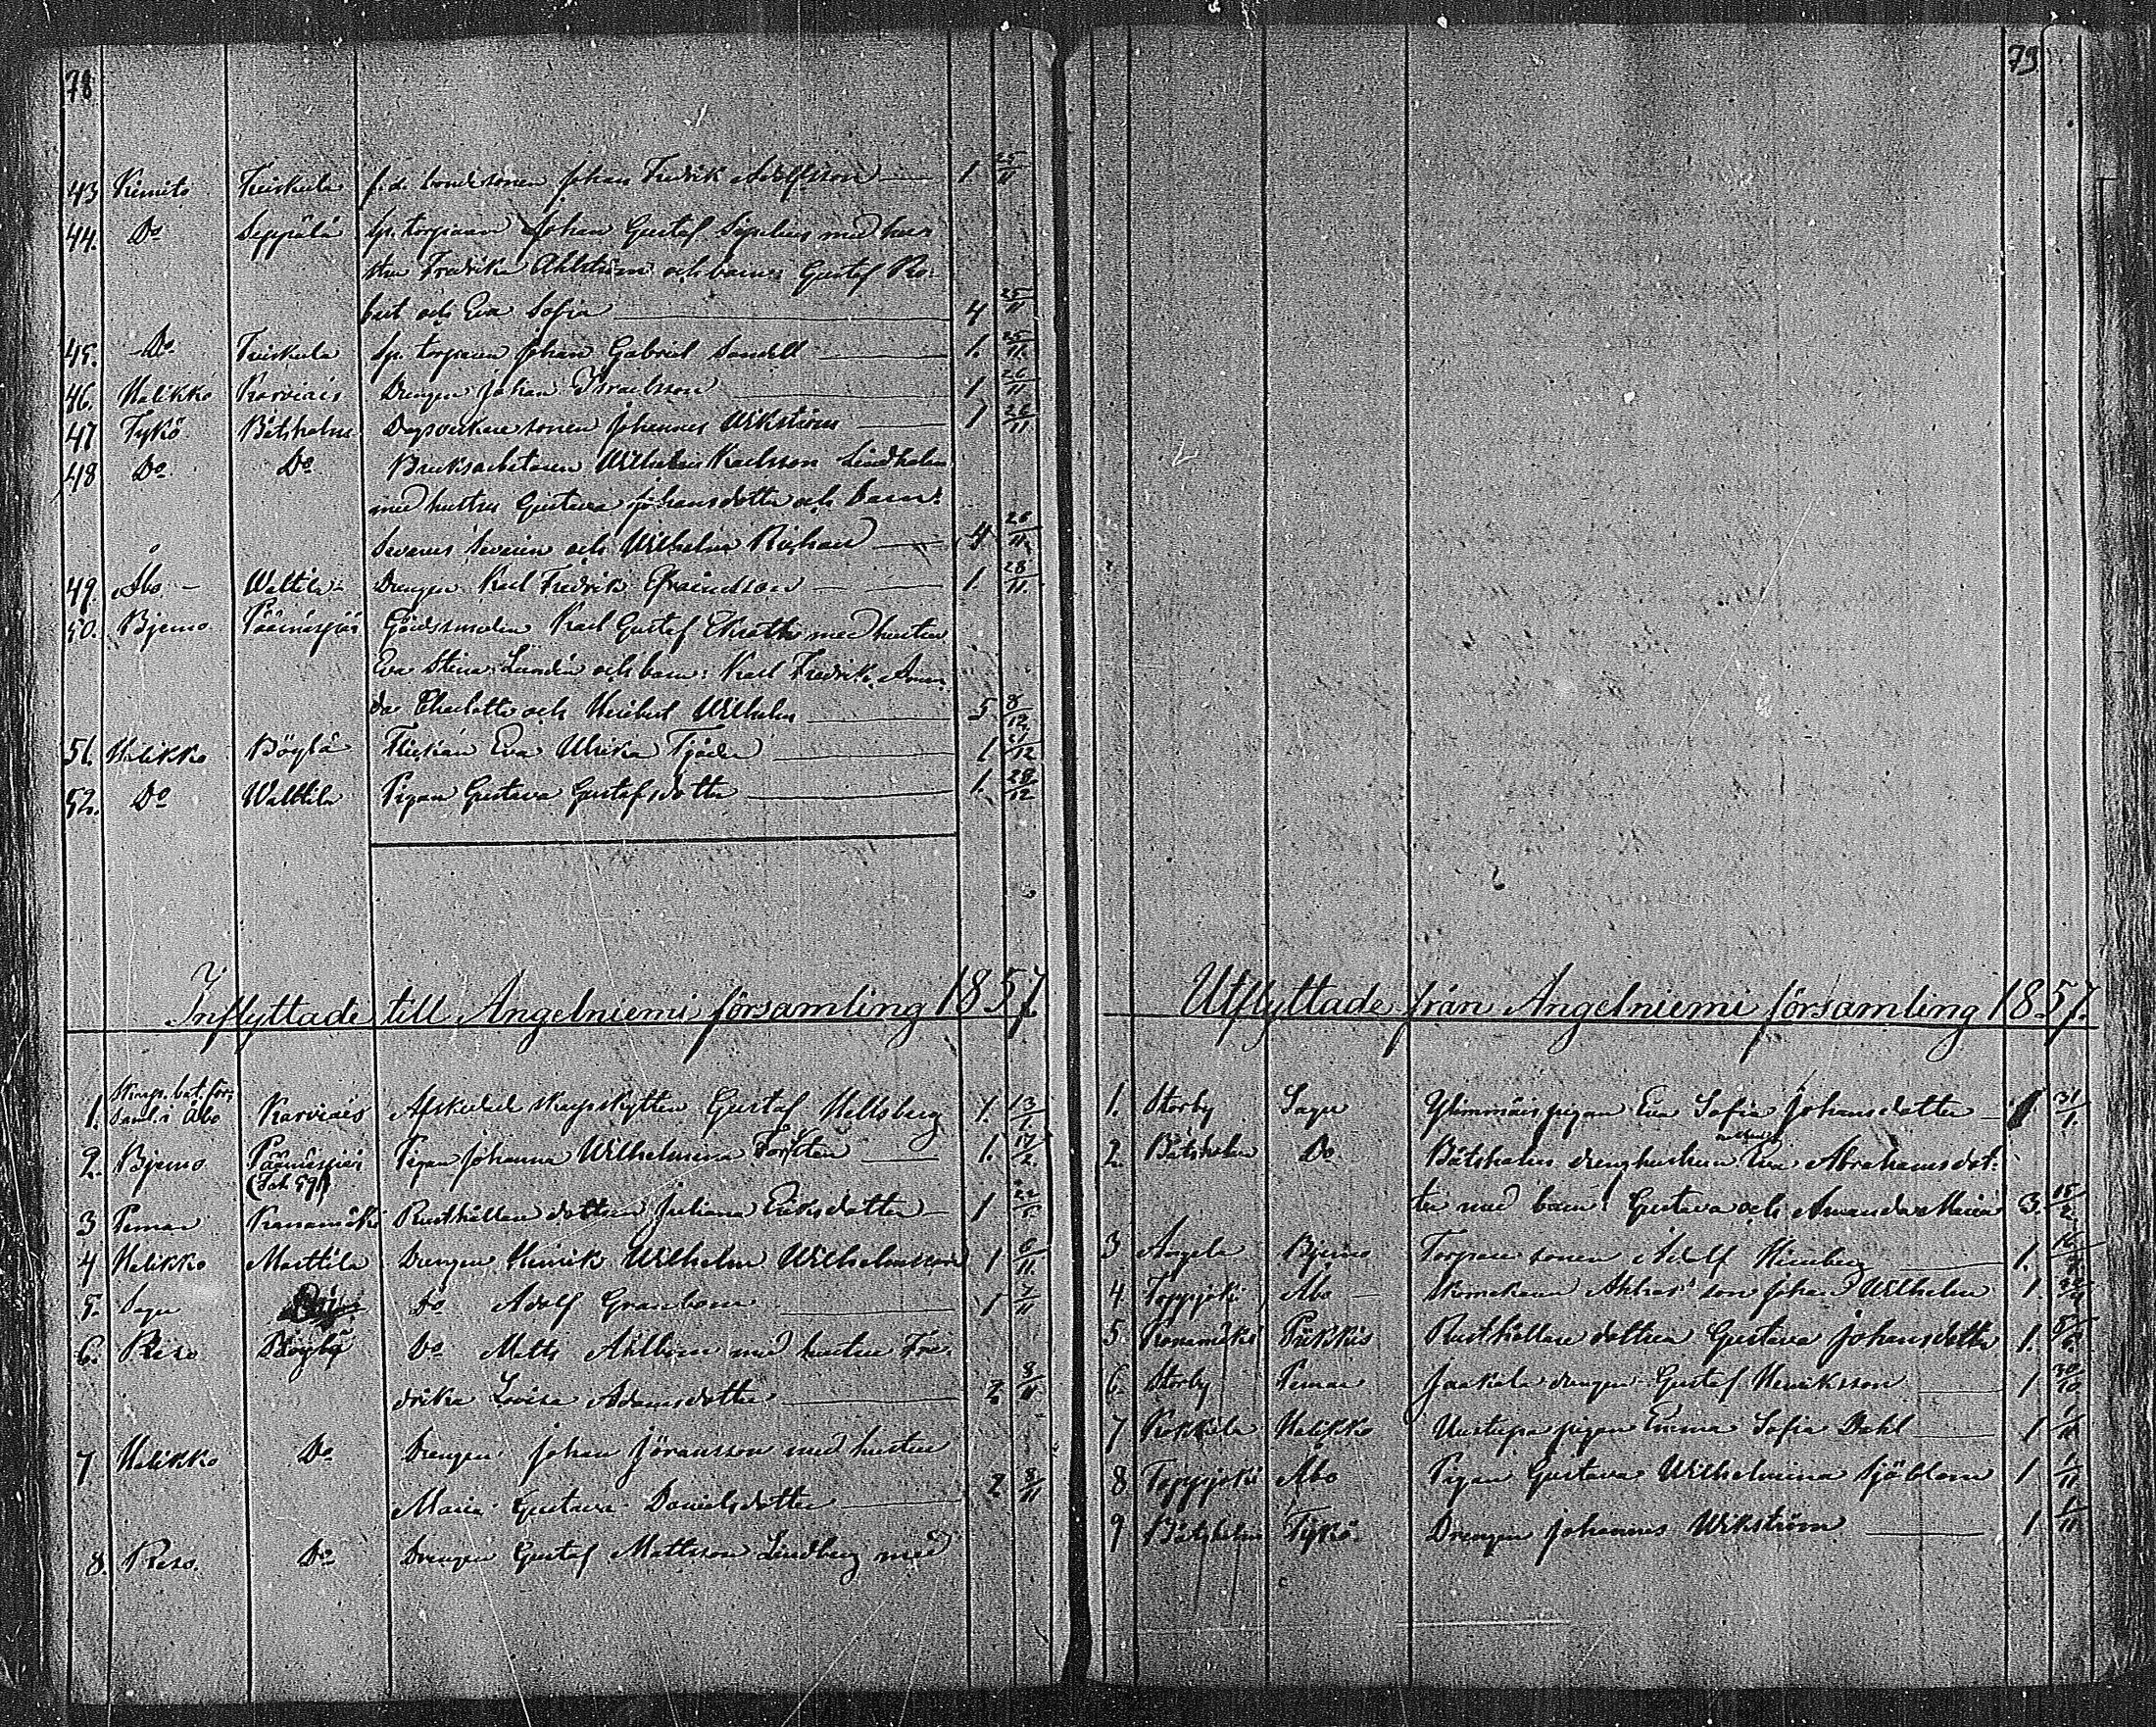 78
43 Kimito Friskula f.d. bondesonen Johan Fredrik Adolfsson 1 25/11
44. Do Seppälä Sp. torparen Johan Gustaf med hu-
strun Fredrika Ahlström och barn: Gustaf Ro-
bert och Eva Sofia 4 25/11
45. Do Friskula Sp. torparen Johan Gabriel Sandell 1. 25/11.
46. Halikko Karviais Drengen Johan Israelsson 1 26/11
47 Tykö Båtsholm Dagsverkaresonen Johannes Wikström 1 26/11
48 Do Do Bruksarbetaren Wilhelm Karlsson Lindholm
med hustru Gustava Johansdotter och barn:
Severus Severin och Wilhelm Richard 4 26/11
49. Åbo Walttila Drengen Karl Fredrik Efraimsson 1. 28/11.
50. Bjerno Päärnäspää Karl Gustaf med hustrun
Eva Stina Lundén och barn: Karl Fredrik, Aman-
da Charlotta och Heribert Wilhelm 5 8/12
51. Halikko Böylä Flickan Eva Ulrika Tjäder 1 21/12
52. Do Walttila Pigan Gustava Gustafsdotter 1. 28/12
Inflyttade till Angelniemi församling 1857.
1. Skarps. bat. för-
saml. i Åbo Karviais Afskedade skarpskytten Gustaf Hellsberg 1. 13/1.
2. Bjerno Päärnäspää Pigan Johanna Wilhelmina Forstén 1. 17/2.
3 Pemar Kanamäki Rusthållare dottren Juliana Eriksdotter 1 22/
4 Halikko Marttila Drengen Henrik Wilhelm Wilhelmsson 1 6/11
5. Sagu Do Adolf Granbom 1 7/11
6. Reso Böylä Do Matts Ahlbom med hustru Fre-
drika Lovisa Adamsdotter 2 8/11
7 Halikko Do Drengen Johan Jöransson med hustru
Maria Gustava Danielsdotter 2 8/11
8. Reso. Do Drengen Gustaf Mattsson Lindberg med
79
Utflyttade från Angelniemi församling 1857.
1. Storby Sagu Ylimmäis pigan Eva Sofia Johansdotter 1. 31/1.
2. Båtsholm Do Båtsholms drenghustrun Eva Abrahamsdot-
ter med barn: Gustava och Amanda Maria 3. 15/2
3 Angela Bjerno Torpare sonen Adolf 1. 16/
4 Toppjoki Åbo Johan Wilhelm 1
5. Konamäki Piikkis Rusthållare dottren Gustava Johansdotter 1.
6. Storby Pemar Jaakola drengen Gustaf Henriksson 1 30/10
7 Kokkila Halikko pigan Emma Sofia Dahl 1 /11
8 Toppjoki Åbo Pigan Gustava Wilhelmina Sjöblom 1 /11
9 Båtsholm Tykö. Drengen Johannes Wikström 1 /11